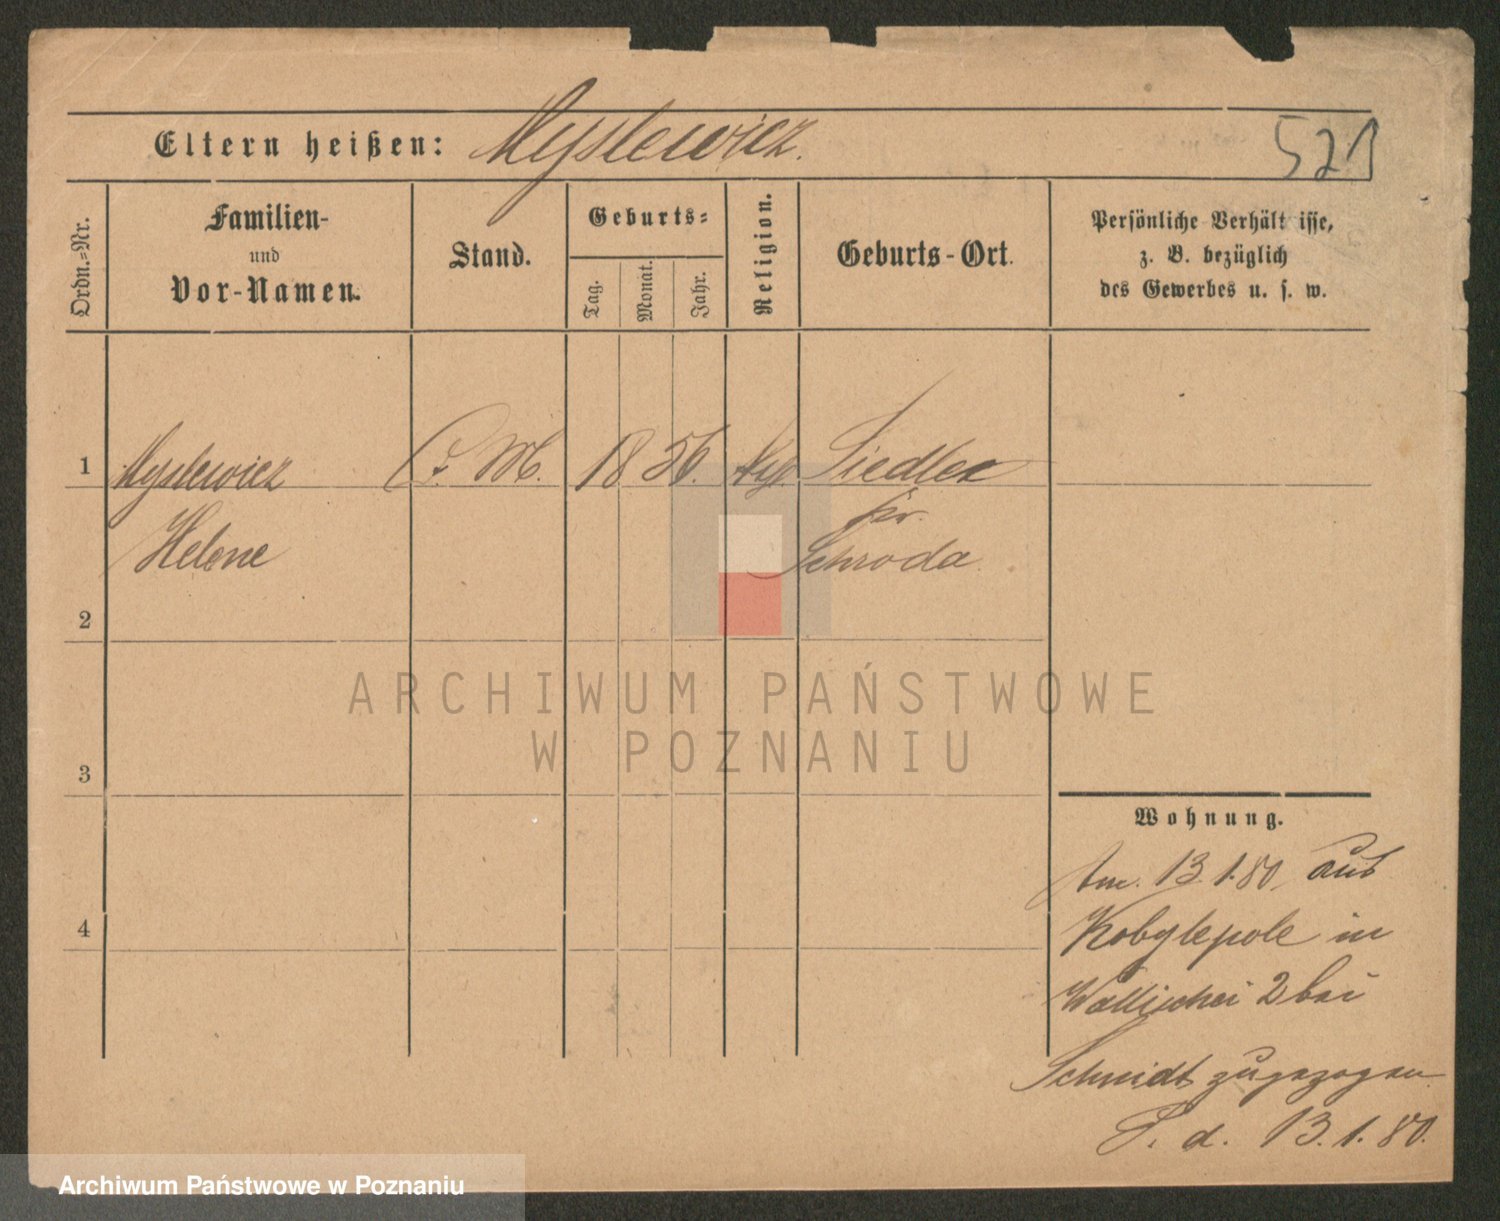 Eltern heißen: Myslewicz.
521
Ordn.=Nr.
Familien-
und
Vor-Namen.
Stand.
Geburts=
Tag.
Monat.
Jahr.
Religion.
Geburts-Ort.
Persönliche Verhält isse,
z. B. bezüglich
des Gewerbes u. s. w.
1
Myslewicz
M.
18 56.
Siedlec
pr.
Helene
Schroda
2
ARCHIWUM PAŃSTWOWE
W POZNANIU
3
Wohnung.
Am. 13.1.80. aus
4
Kobylepole in
Wallischei 2 bei
Schmidt zugezogen
P. d. 13.1.80.
Archiwum Państwowe w Poznaniu